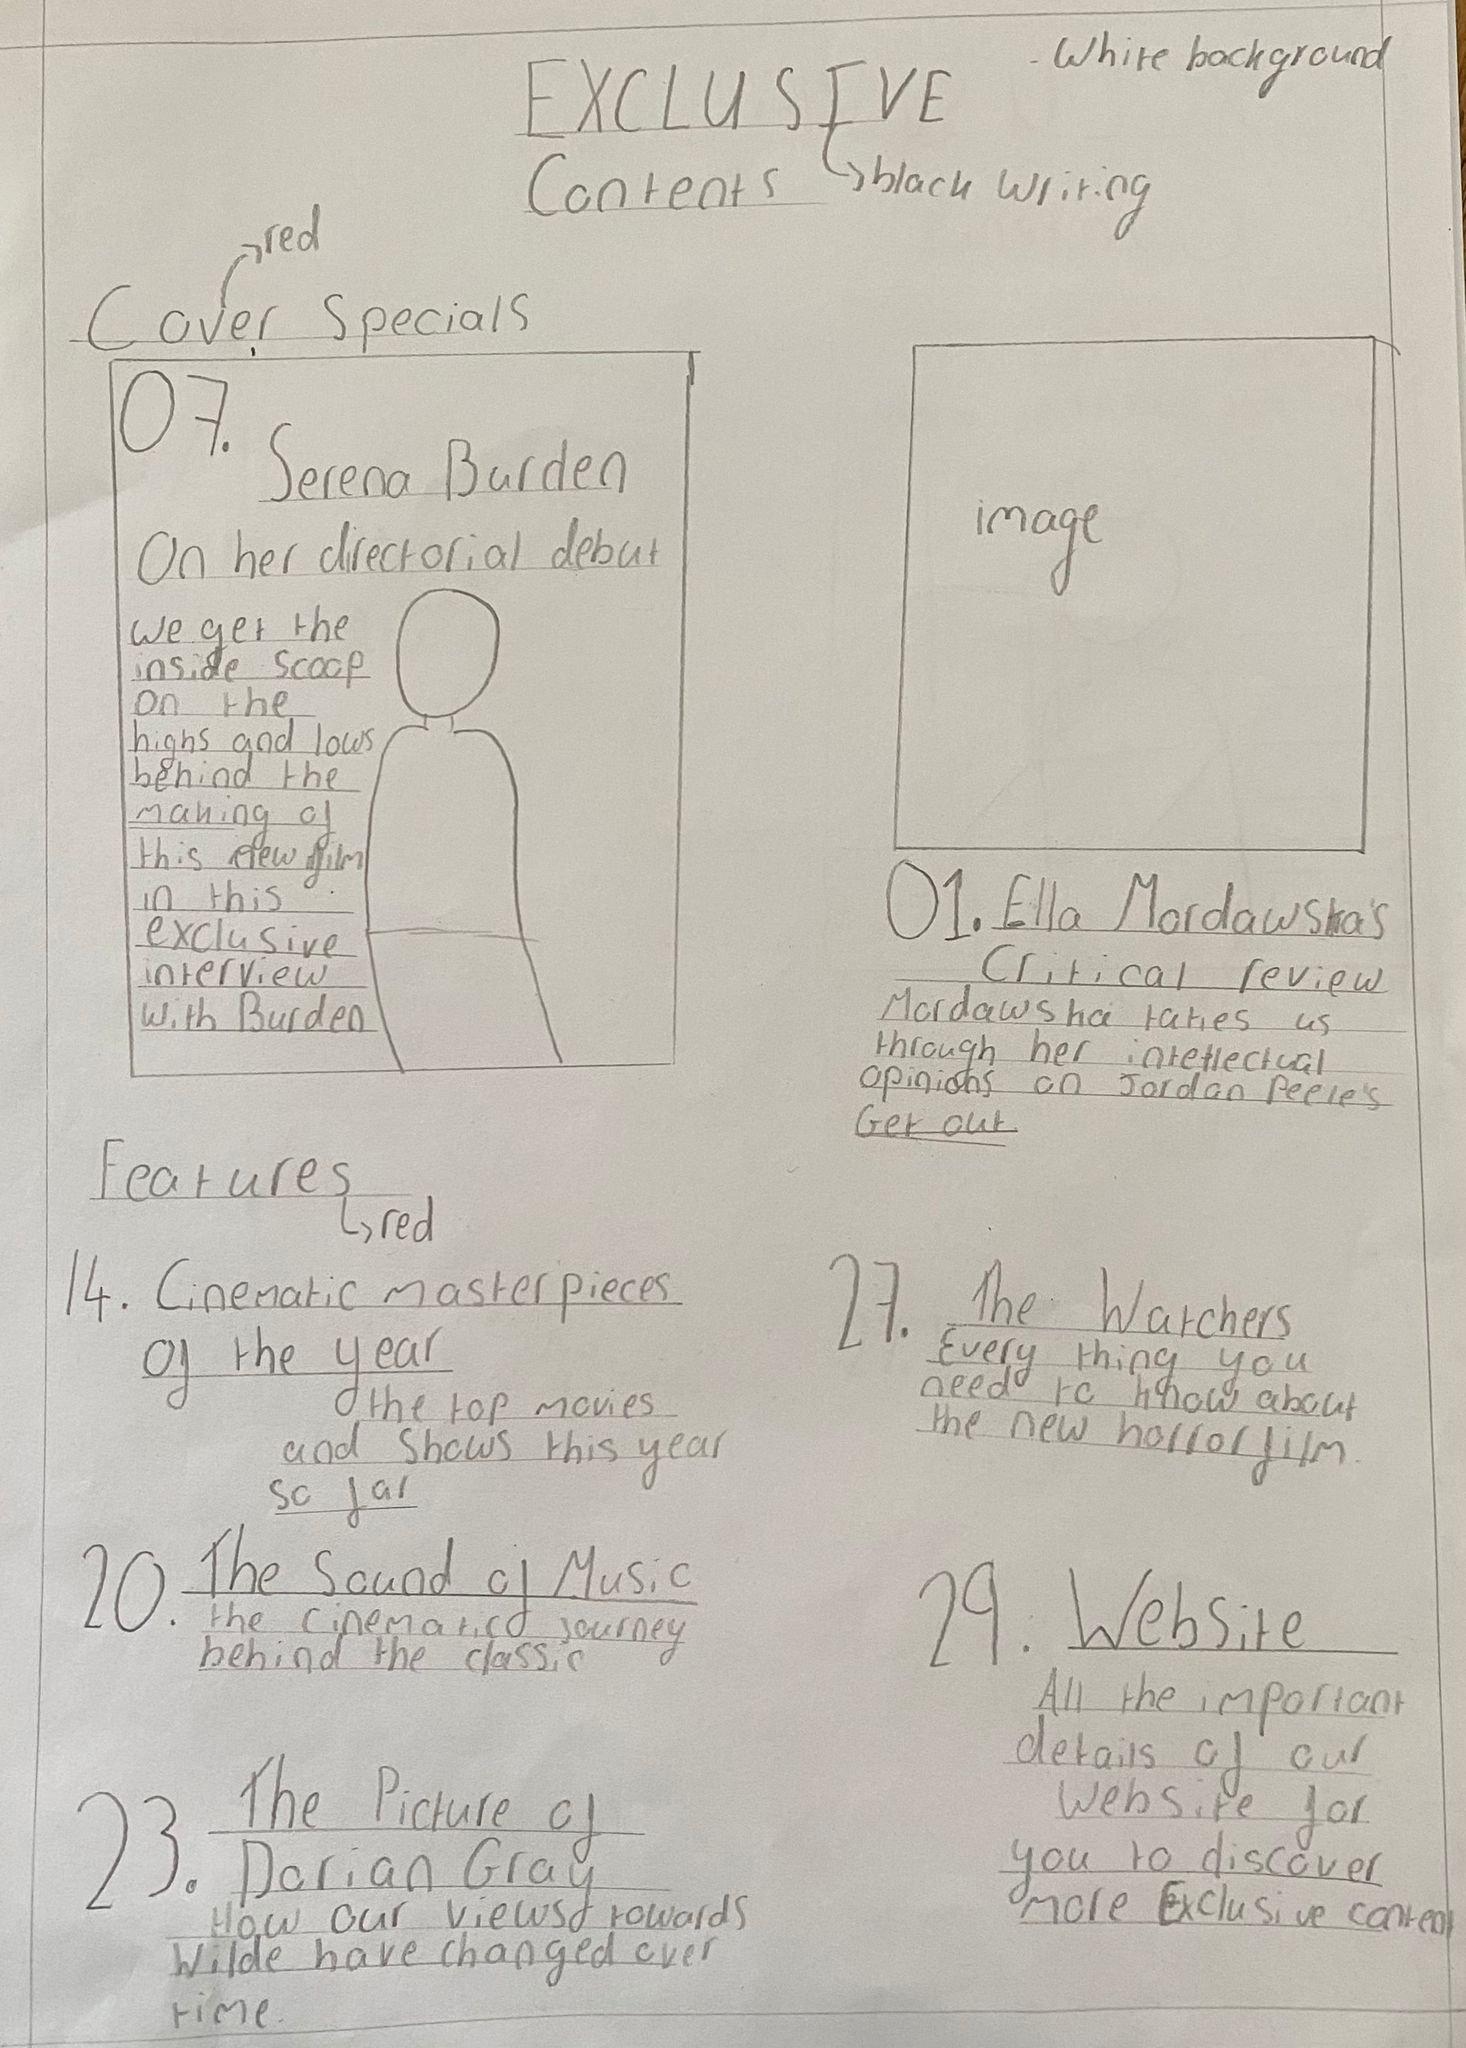 - White background
EXCLUSIVE
Contents
black writing
red
Cover Specials
07.
Serena Burden
On her directorial debut
we get the
inside scoop
on the
highs and lows
behind the
making of
this new film
in this
exclusive
interview
with Burden
image
01. Ella Mordawska's
Critical review
Mordawska takes us
through her intellectual
opinions on Jordan Peele's
Get out
Features
red
14. Cinematic masterpieces
of the year
the top movies
and shows this year
so far
20. The Sound of Music
the cinematic journey
behind the classic
23. The Picture of
Dorian Gray
How our views towards
Wilde have changed over
time.
27. The Watchers
Every thing you
need to know about
the new horror film.
29. Website
All the important
details of our
website for
you to discover
more Exclusive content